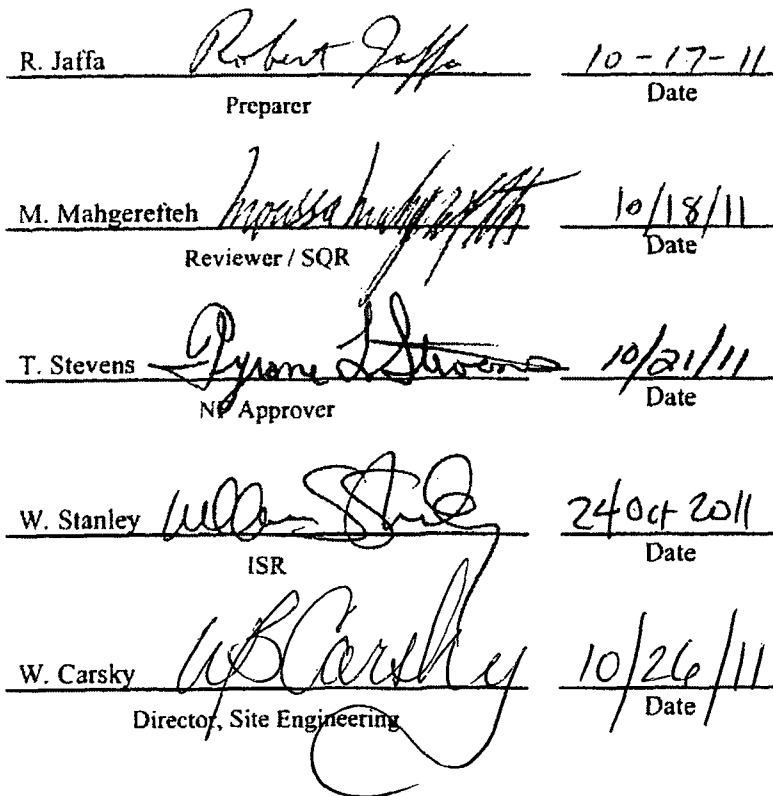 R. Jaffa Robert Jaffa 10-17-11
Preparer Date
M. Mahgerefteh Moussa Mahgerefteh 10/18/11
Reviewer / SQR Date
T. Stevens Tyrone L Stevens 10/21/11
NF Approver Date
W. Stanley William Stanley 24 Oct 2011
ISR Date
W. Carsky WB Carsky 10/26/11
Director, Site Engineering Date